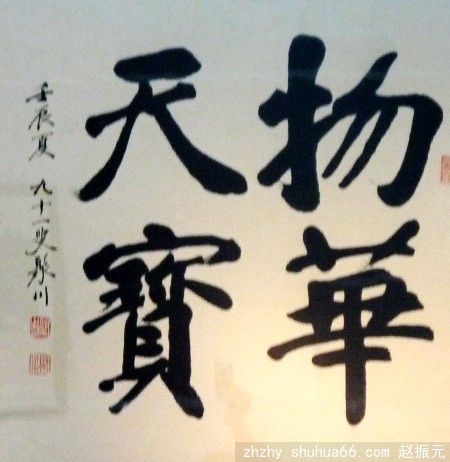 物華
天寶
壬辰夏 九十一叟聚川
zhzhy.shuhua66.com 赵振元